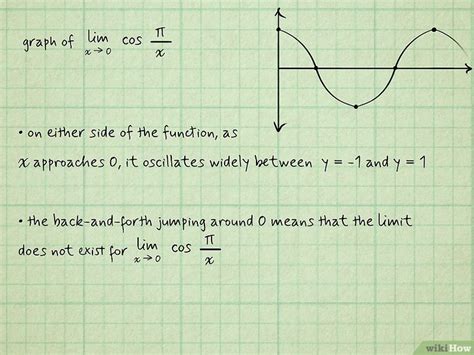 graph of lim x→0 cos π/x
• on either side of the function, as
x approaches 0, it oscillates widely between y = -1 and y = 1
• the back-and-forth jumping around 0 means that the limit
does not exist for lim x→0 cos π/x
wikiHow